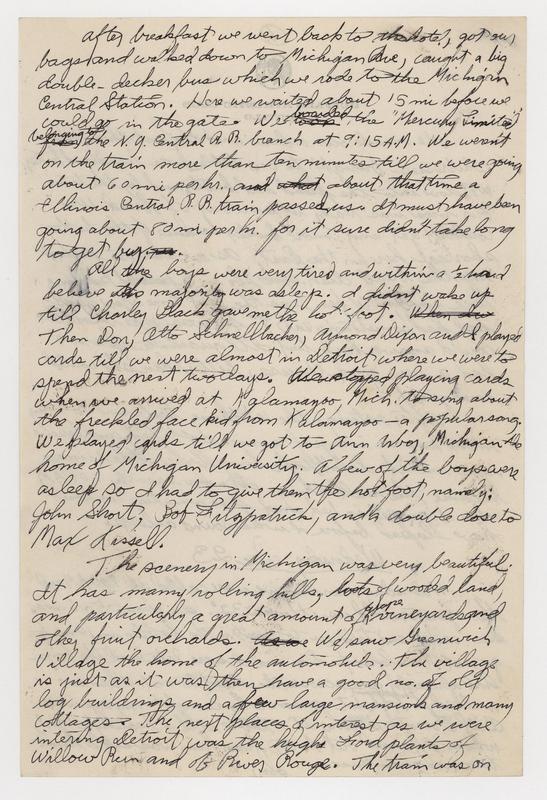 After breakfast we went back to the hotel, got our
bags and walked down to Michigan Ave, caught a big
double-decker bus which we rode to the Michigan
Central Station. Here we waited about 15 min before we
could go in the gate. We boarded the "Mercury Limited"
belonging to the N.Y. Central R.R. branch at 9:15 A.M. We weren't
on the train more than ten minutes till we were going
about 60 mi per hr, and what about that time a
Illinois Central R.R. train passed us. It must have been
going about 80 mi per hr. for it sure didn't take long
to get by us.
All the boys were very tired and within a ½ hour I
believe the majority was asleep. I didn't wake up
till Charley Black gave me the hot-foot. When we
Then Don, Otto Schnellbacher, Armond Dixon and I played
cards till we were almost in Detroit where we were to
spend the next two days. We stopped playing cards
when we arrived at Kalamazoo, Mich. to sing about
the freckled face kid from Kalamazoo - a popular song.
We played cards till we got to Ann Arbor, Michigan the
home of Michigan University. A few of the boys were
asleep so I had to give them the hot foot, namely:
John Short, Bob Fitzpatrick, and a double dose to
Max Kissell.
The scenery in Michigan was very beautiful.
It has many rolling hills, lots of wooded land,
and particularly a great amount of grape vineyards and
other fruit orchards. As we We saw Greenwich
Village the home of the automobile. The village
is just as it was then have a good no. of old
log buildings and a few large mansions and many
cottages. The next places of interest as we were
intering Detroit was the huge Ford plants of
Willow Run and of River Rouge. The train was on